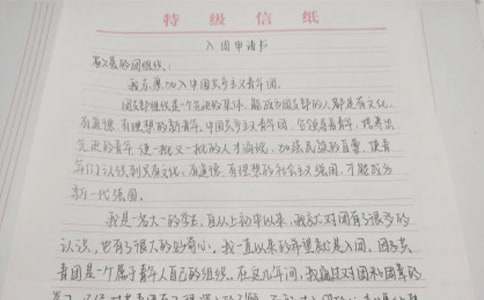 特级信纸
入团申请书
敬爱的团组织:
我志愿加入中国共产主义青年团。
团支部组织是一个先进的集体,能成为团支部的人都是有文化、
有道德、有理想的新青年。中国共产主义青年团,它领导着青年,培养出
先进的青年,使一批又一批的人才涌现,加强民族的力量,使青
年们认识到只有文化、有道德、有理想的社会主义强国,才能成为
新一代强国。
我是一名大一的学生,自从上初中以来,我就对团有了很多的
认识,也有了很大的好奇心。我一直以来的希望就是入团。团
青团是一个属于青年人自己的组织。在这几年间,我通过对团和团章的